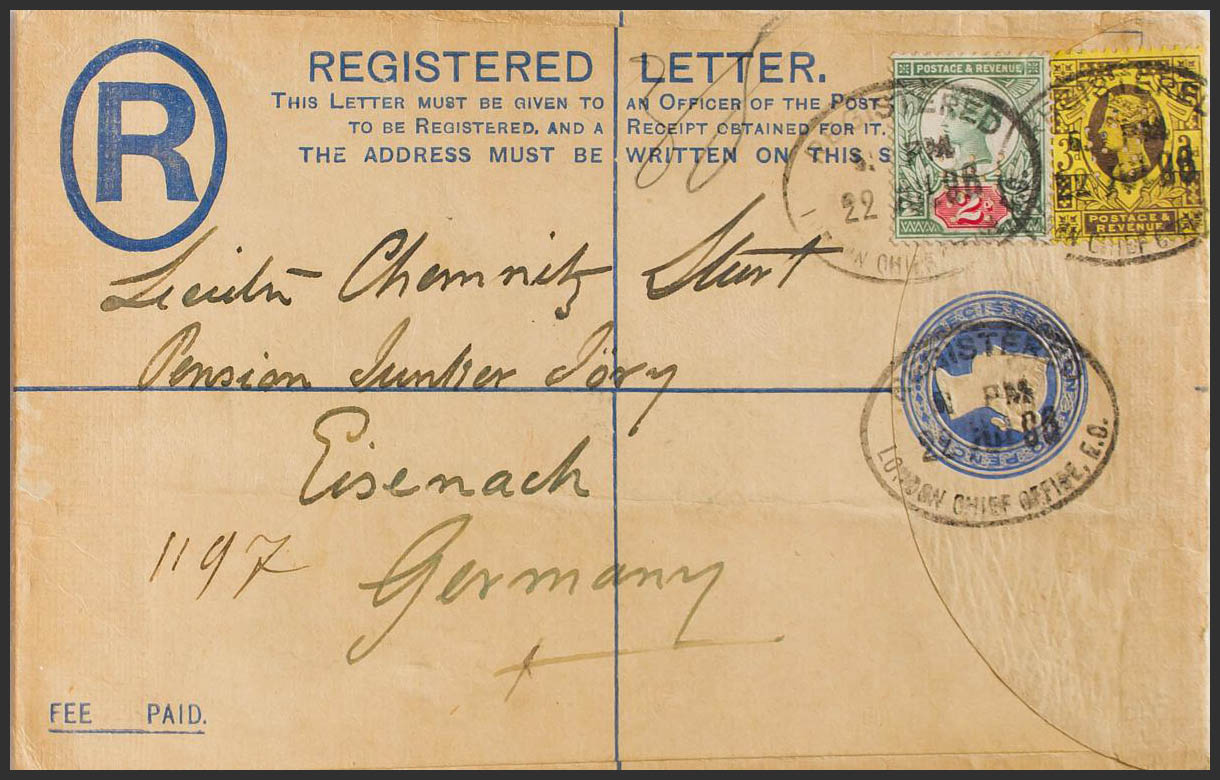 R
REGISTERED LETTER.
THIS LETTER MUST BE GIVEN TO AN OFFICER OF THE POST
TO BE REGISTERED, AND A RECEIPT OBTAINED FOR IT.
THE ADDRESS MUST BE WRITTEN ON THIS S
POSTAGE & REVENUE
2
REGISTERED
PM
22
3D
POSTAGE & REVENUE
REGISTERED
PM
Chemnitz
Pension Junker Jörg
Eisenach
Germany
1197
REGISTRATION
PENCE
PM
LONDON CHIEF OFFICE, E.C.
FEE PAID.